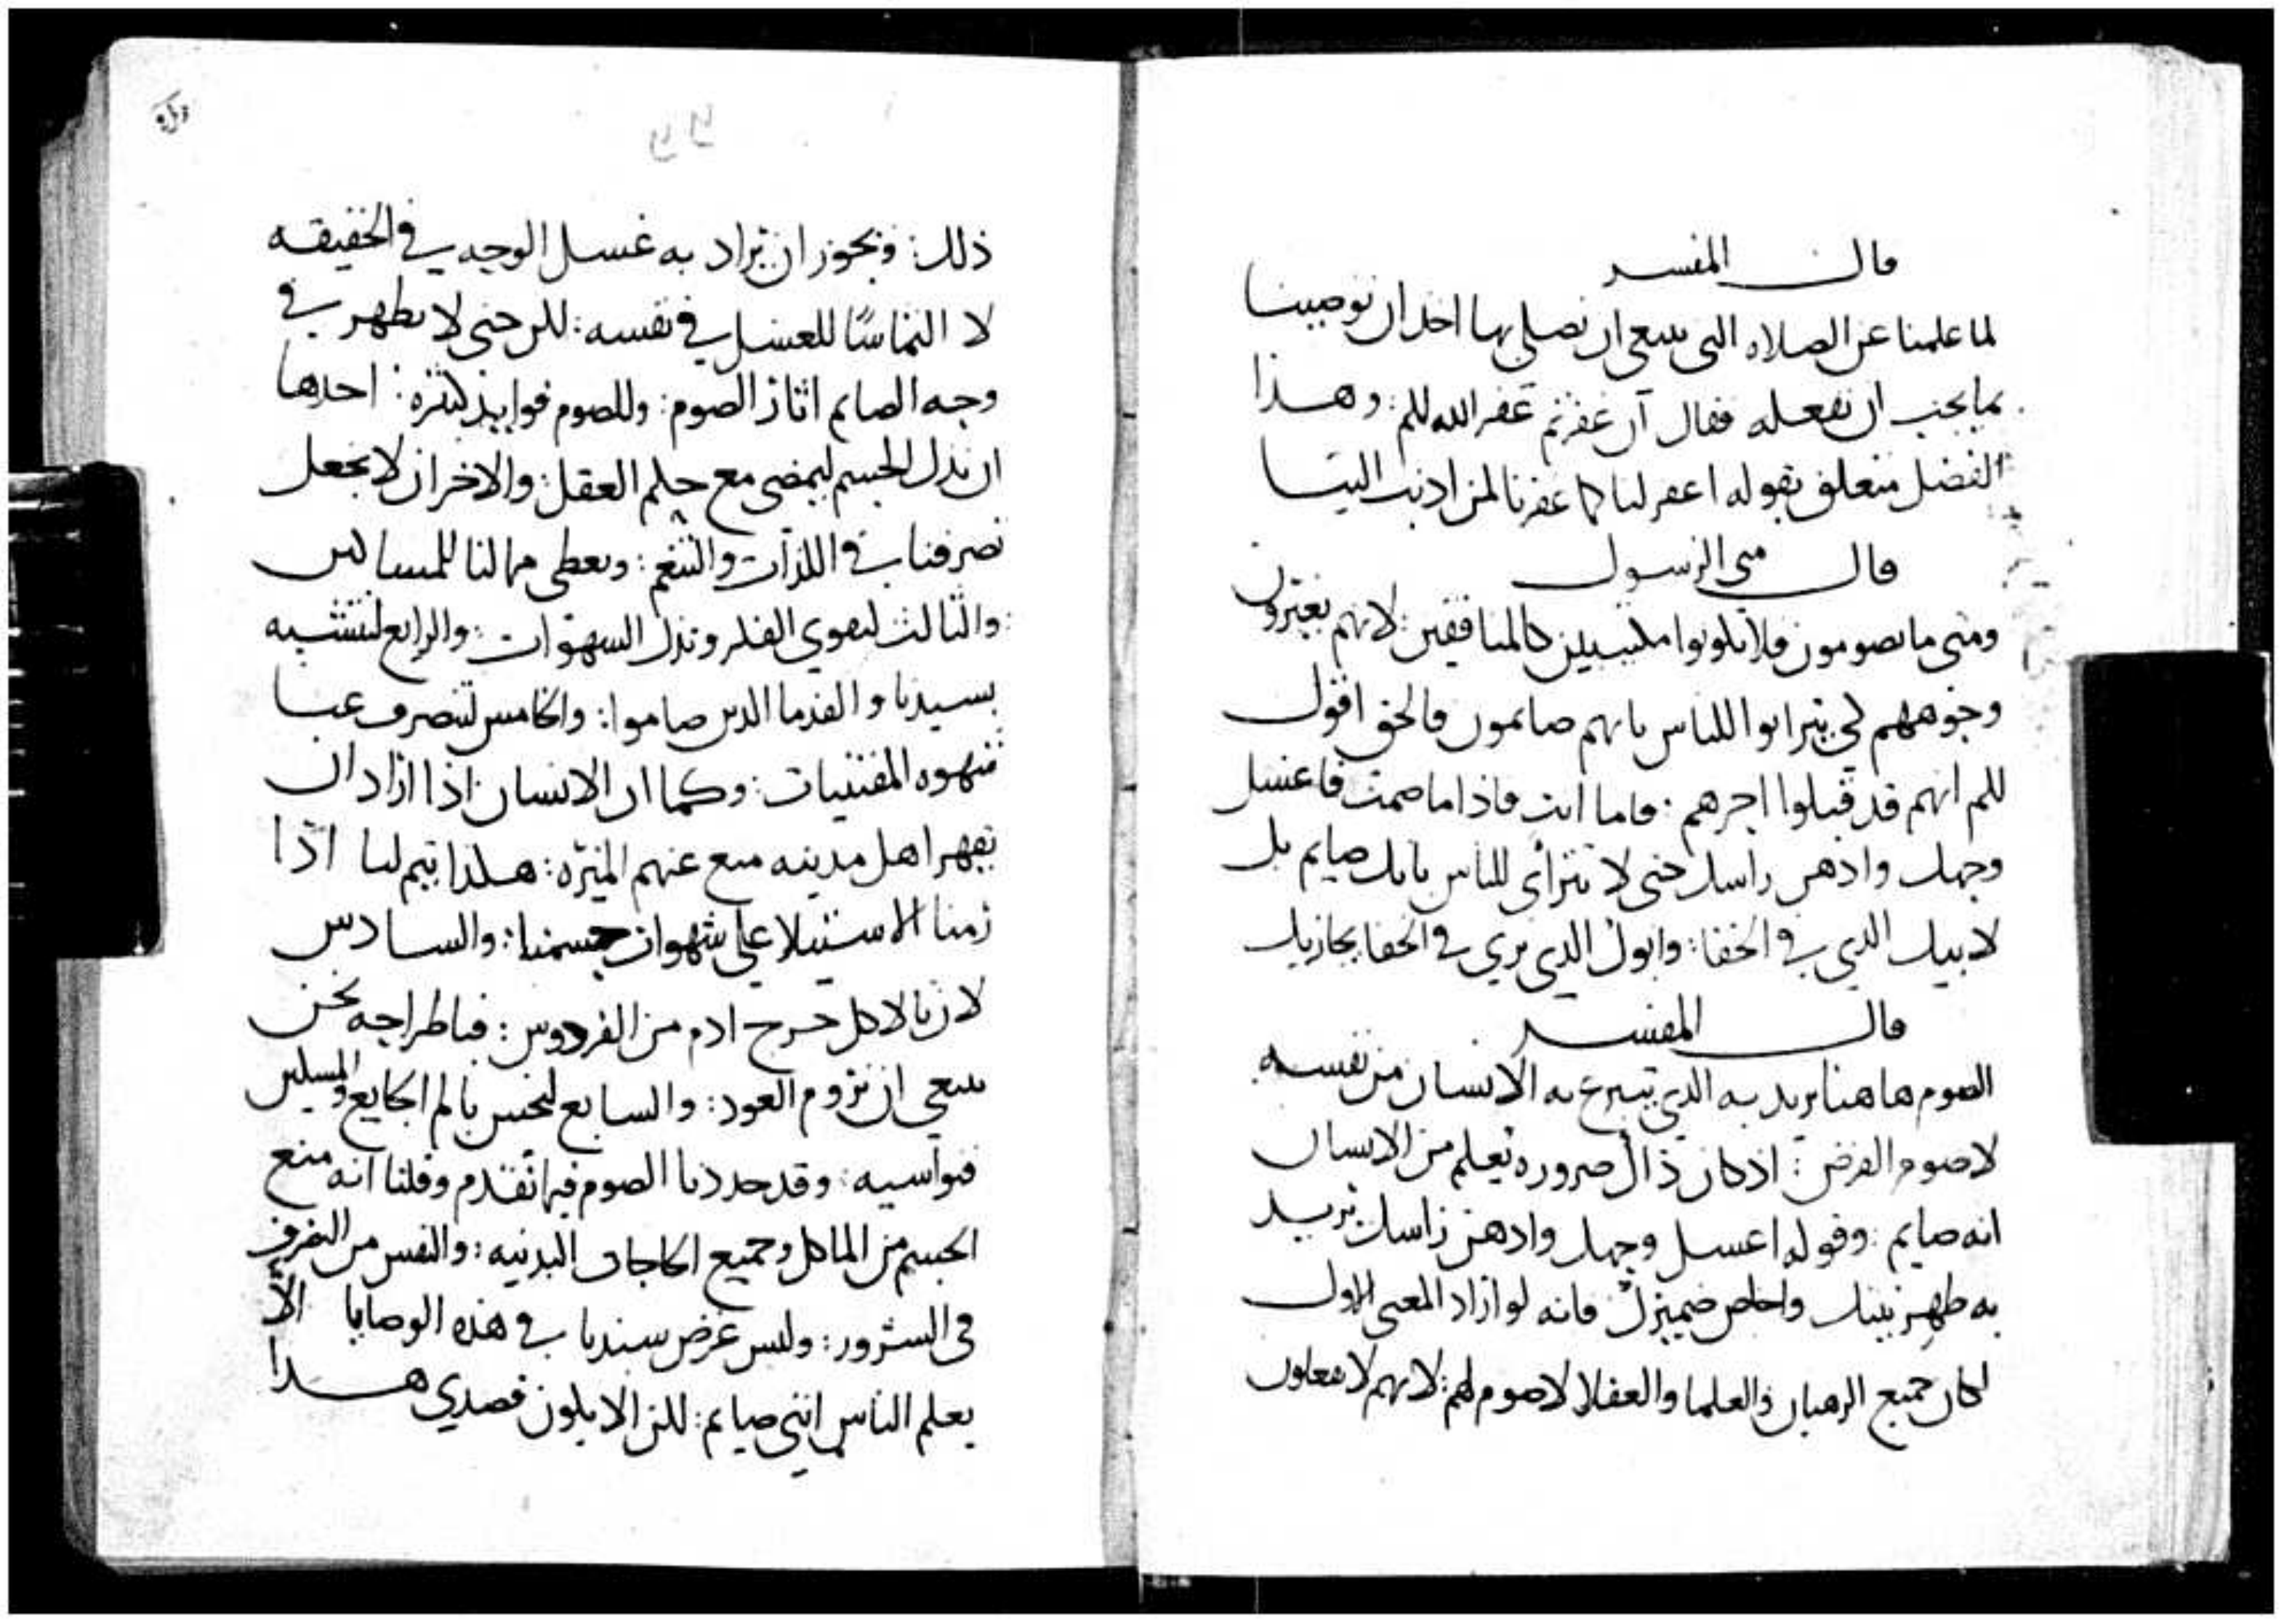 قال المفسر
لما علمنا عن الصلاه التى ينبغى ان نصلى بها اخذ ان يوصينا
بما يجب ان نفعله فقال ان غفرتم غفر الله لكم: وهذا
الفصل متعلق بقوله اغفر لنا كما غفرنا لمن اذنب الينا
قال متى الرسول
ومتى ما تصومون فلا تكونوا مكتبيين كالمنافقين: لانهم يغيرون
وجوههم لكي يتراىوا للناس بانهم صائمون فالحق اقول
لكم انهم قد قبلوا اجرهم: فاما انت فاذا ما صمت فاغسل
وجهك وادهن راسك حتى لا تتراأى للناس بانك صايم بل
لابيك الذي في الخفا: وابوك الذي يرى في الخفا يجازيك
قال المفسر
الصوم هاهنا يريد به الذي يتبرع به الانسان من نفسه
لا صوم الفرض: اذ كان ذاك ضروره يعلم من الانسان
انه صايم: وقوله اغسل وجهك وادهن راسك يريد
به طهر نيتك واخلص ضميرك فانه لو اراد المعنى الاول
لكان جميع الرهبان والعلما والعقلا لا صوم لهم: لانهم لا يفعلون
ذلك: ويجوز ان يراد به غسل الوجه في الحقيقه
لا التماسًا للغسل في نفسه: لكن حتى لا يظهر في
وجه الصايم اثار الصوم: وللصوم فوايد كثيره: احدها
ان يذل الجسم ليمضى مع حكم العقل: والاخر ان لا يجعل
تصرفنا في اللذات والتنعم: ويعطى مما لنا للمساكين
والثالث ليقوي الفكر وتذل الشهوات: والرابع لنتشبه
بسيدنا والقدما الذين صاموا: والخامس لتنصرف عنا
شهوه المقتنيات: وكما ان الانسان اذا اراد ان
يقهر اهل مدينه منع عنهم الميره: هكذا يتم لنا اذا
رمنا الاستيلا على شهوات جسمنا: والسادس
لان بالاكل خرج ادم من الفردوس: فباطراحه نحن
ينبغى ان نروم العود: والسابع لنحس بالم الجايع والمسكين
فنواسيه: وقد حددنا الصوم فيما تقدم وقلنا انه منع
الجسم من الماكل وجميع الحاجات البدنيه: والنفس من التصرف
فى الشرور: وليس غرض سيدنا في هذه الوصايا الاّ
يعلم الناس اننى صايم: لكن الا يكون قصدي هذا